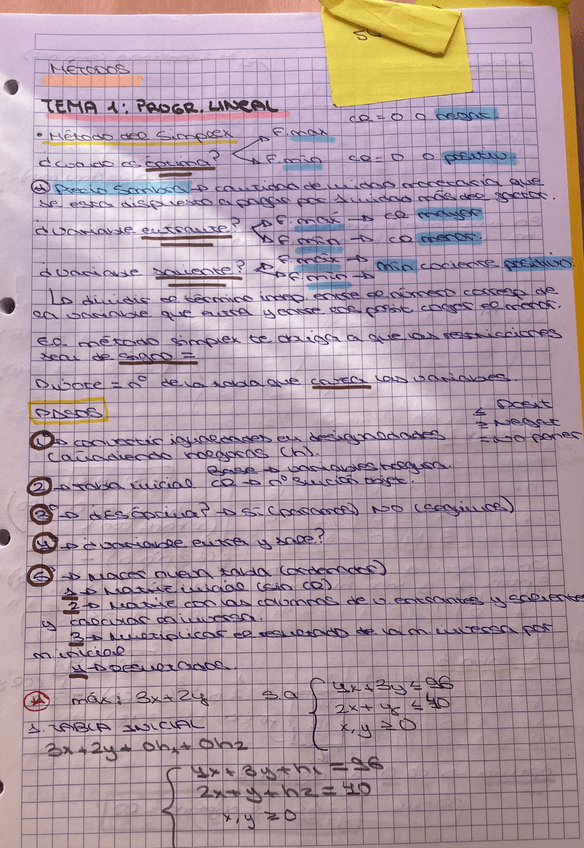 MÉTODOS
TEMA 1: PROGR. LINEAL
• Método del Simplex
¿Cuándo es óptima? F. max CR = 0 o negat.
F. min CR = 0 o positivo.
Precio Sombra → cantidad de unidad monetaria que
se está dispuesto a pagar por 1 unidad más del factor.
¿variable entrante? F. max → CR mayor
F. min → CR menor
¿variable saliente? F. max → min cociente positivo
F. min →
↳ dividir el término indep. entre el número corresp. de
la variable que entra y entre los posit. coges el menor.
El método simplex te obliga a que las restricciones
sean de signo =
Pivote = nº de la tabla que las variables.
PASOS
≤ Posit
≥ Negat
= No pones
1 → convertir igualdades en desigualdades
(añadiendo holguras (h).
Base → variables holgura
2 → tabla inicial CR → nº función objet.
3 → ¿ES óptima? → Sí (paramos) NO (seguimos)
4 → ¿variable entra y sale?
5 → Hacer nueva tabla (ordenados)
1 → Matriz inicial (sin CR)
2 → Matriz con las columnas de v. entrantes y salientes
y calcular su inversa.
3 → Multiplicar el resultado de la m. inversa por
m. inicial
4 →
máx: 3x+2y s.a 4x+3y ≤ 96
2x+y ≤ 40
x,y ≥ 0
1. TABLA INICIAL
3x+2y+0h1+0h2
4x+3y+h1 = 96
2x+y+h2 = 40
x,y ≥ 0